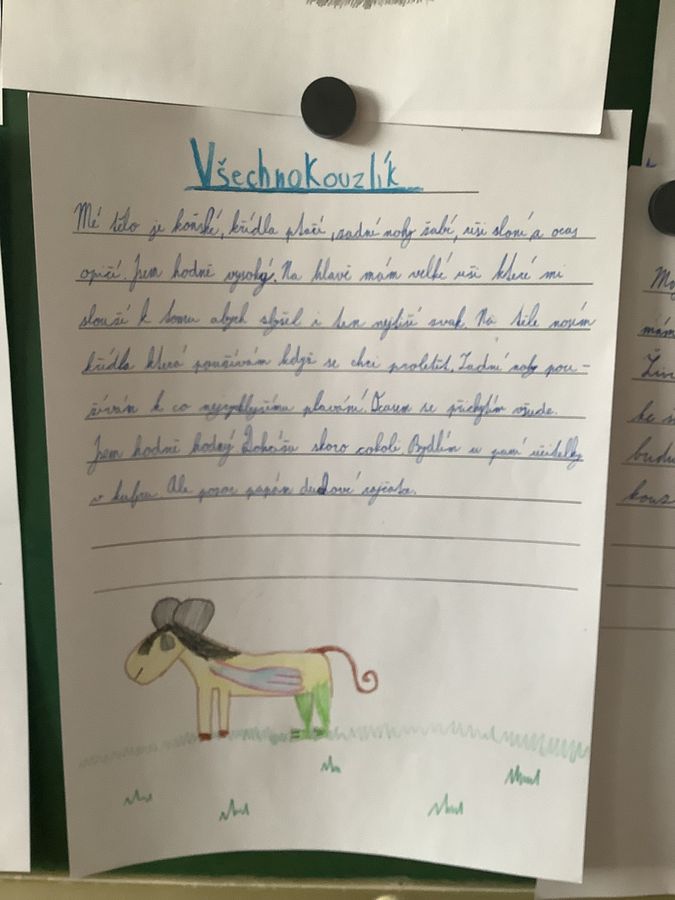 VšechnoKouzlík
Mé tělo je koňské, křídla ptačí, zadní nohy žabí, uši sloní a ocas
opičí. Jsem hodně vysoký. Na hlavě mám velké uši které mi
slouží k tomu abych slyšel i ten nejtišší zvuk. Na těle nosím
křídla která používám když se chci proletět. Zadní nohy pou-
žívám k co nejrychlejšímu plavání. Ocasem se přichytím všude.
Jsem hodně hodný Dokážu skoro cokoli Bydlím u paní učitelky
v kufru. Ale pozor papám duchové